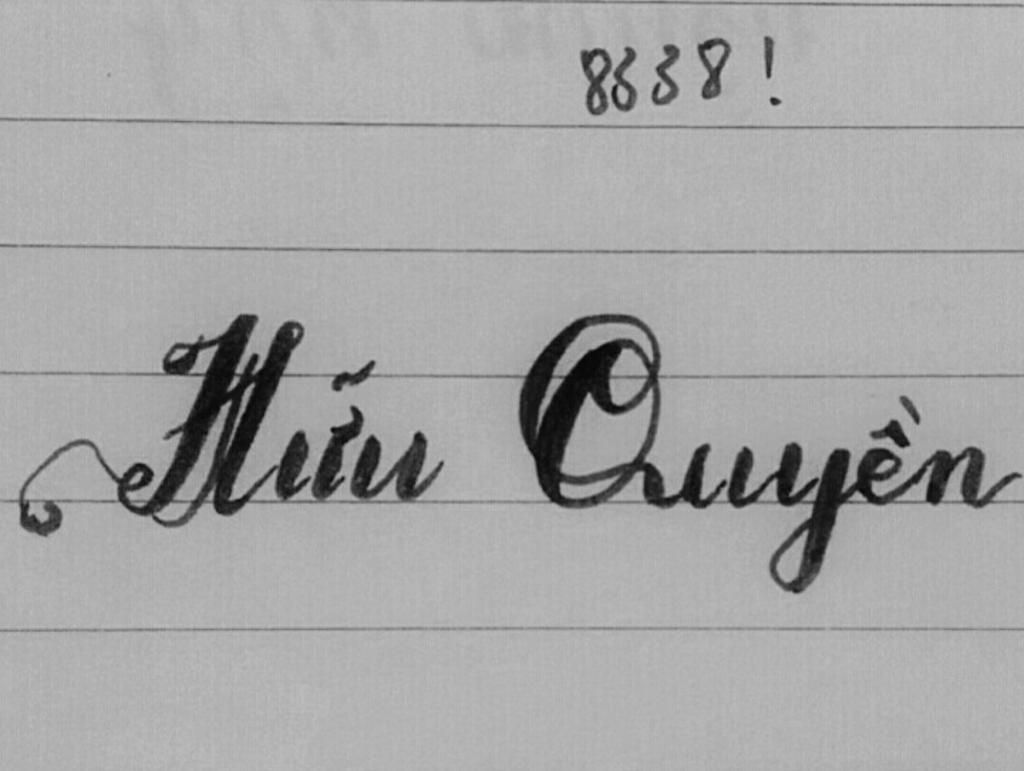 8338!
Hữu Quyền